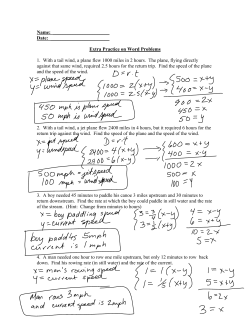 Name:
Date:
Extra Practice on Word Problems
1. With a tail wind, a plane flew 1000 miles in 2 hours. The plane, flying directly
against that same wind, required 2.5 hours for the return trip. Find the speed of the plane
and the speed of the wind.
D=r·t
x=plane speed
y=wind speed
1000 = 2(x+y)
1000 = 2.5(x-y)
500 = x+y
400 = x-y
900 = 2x
450 = x
50 = y
450 mph is plane speed
50 mph is wind speed
2. With a tail wind, a jet plane flew 2400 miles in 4 hours, but it required 6 hours for
the return trip against the wind. Find the speed of the plane and the speed of the wind.
D=r·t
x=jet speed
y=windspeed
2400 = 4(x+y)
2400 = 6(x-y)
600 = x+y
400 = x-y
1000 = 2x
500 = x
100 = y
500 mph = jet speed
100 mph = wind speed
3. A boy needed 45 minutes to paddle his canoe 3 miles upstream and 30 minutes to
return downstream. Find the rate at which the boy could paddle in still water and the rate
of the stream. (Hint: Change from minutes to hours)
x = boy paddling speed
y = current speed
3 = 3/4 (x-y)
3 = 1/2 (x+y)
4 = x-y
6 = x+y
10 = 2x
5 = x
boy paddles 5mph
current is 1 mph
4. A man needed one hour to row one mile upstream, but only 12 minutes to row back
down. Find his rowing rate (in still water) and the rate of the current.
x = man's rowing speed
y = current speed
1 = 1(x-y)
1 = 1/5 (x+y)
1 = x-y
5 = x+y
6 = 2x
3 = x
Man rows 3mph
and current speed is 2mph